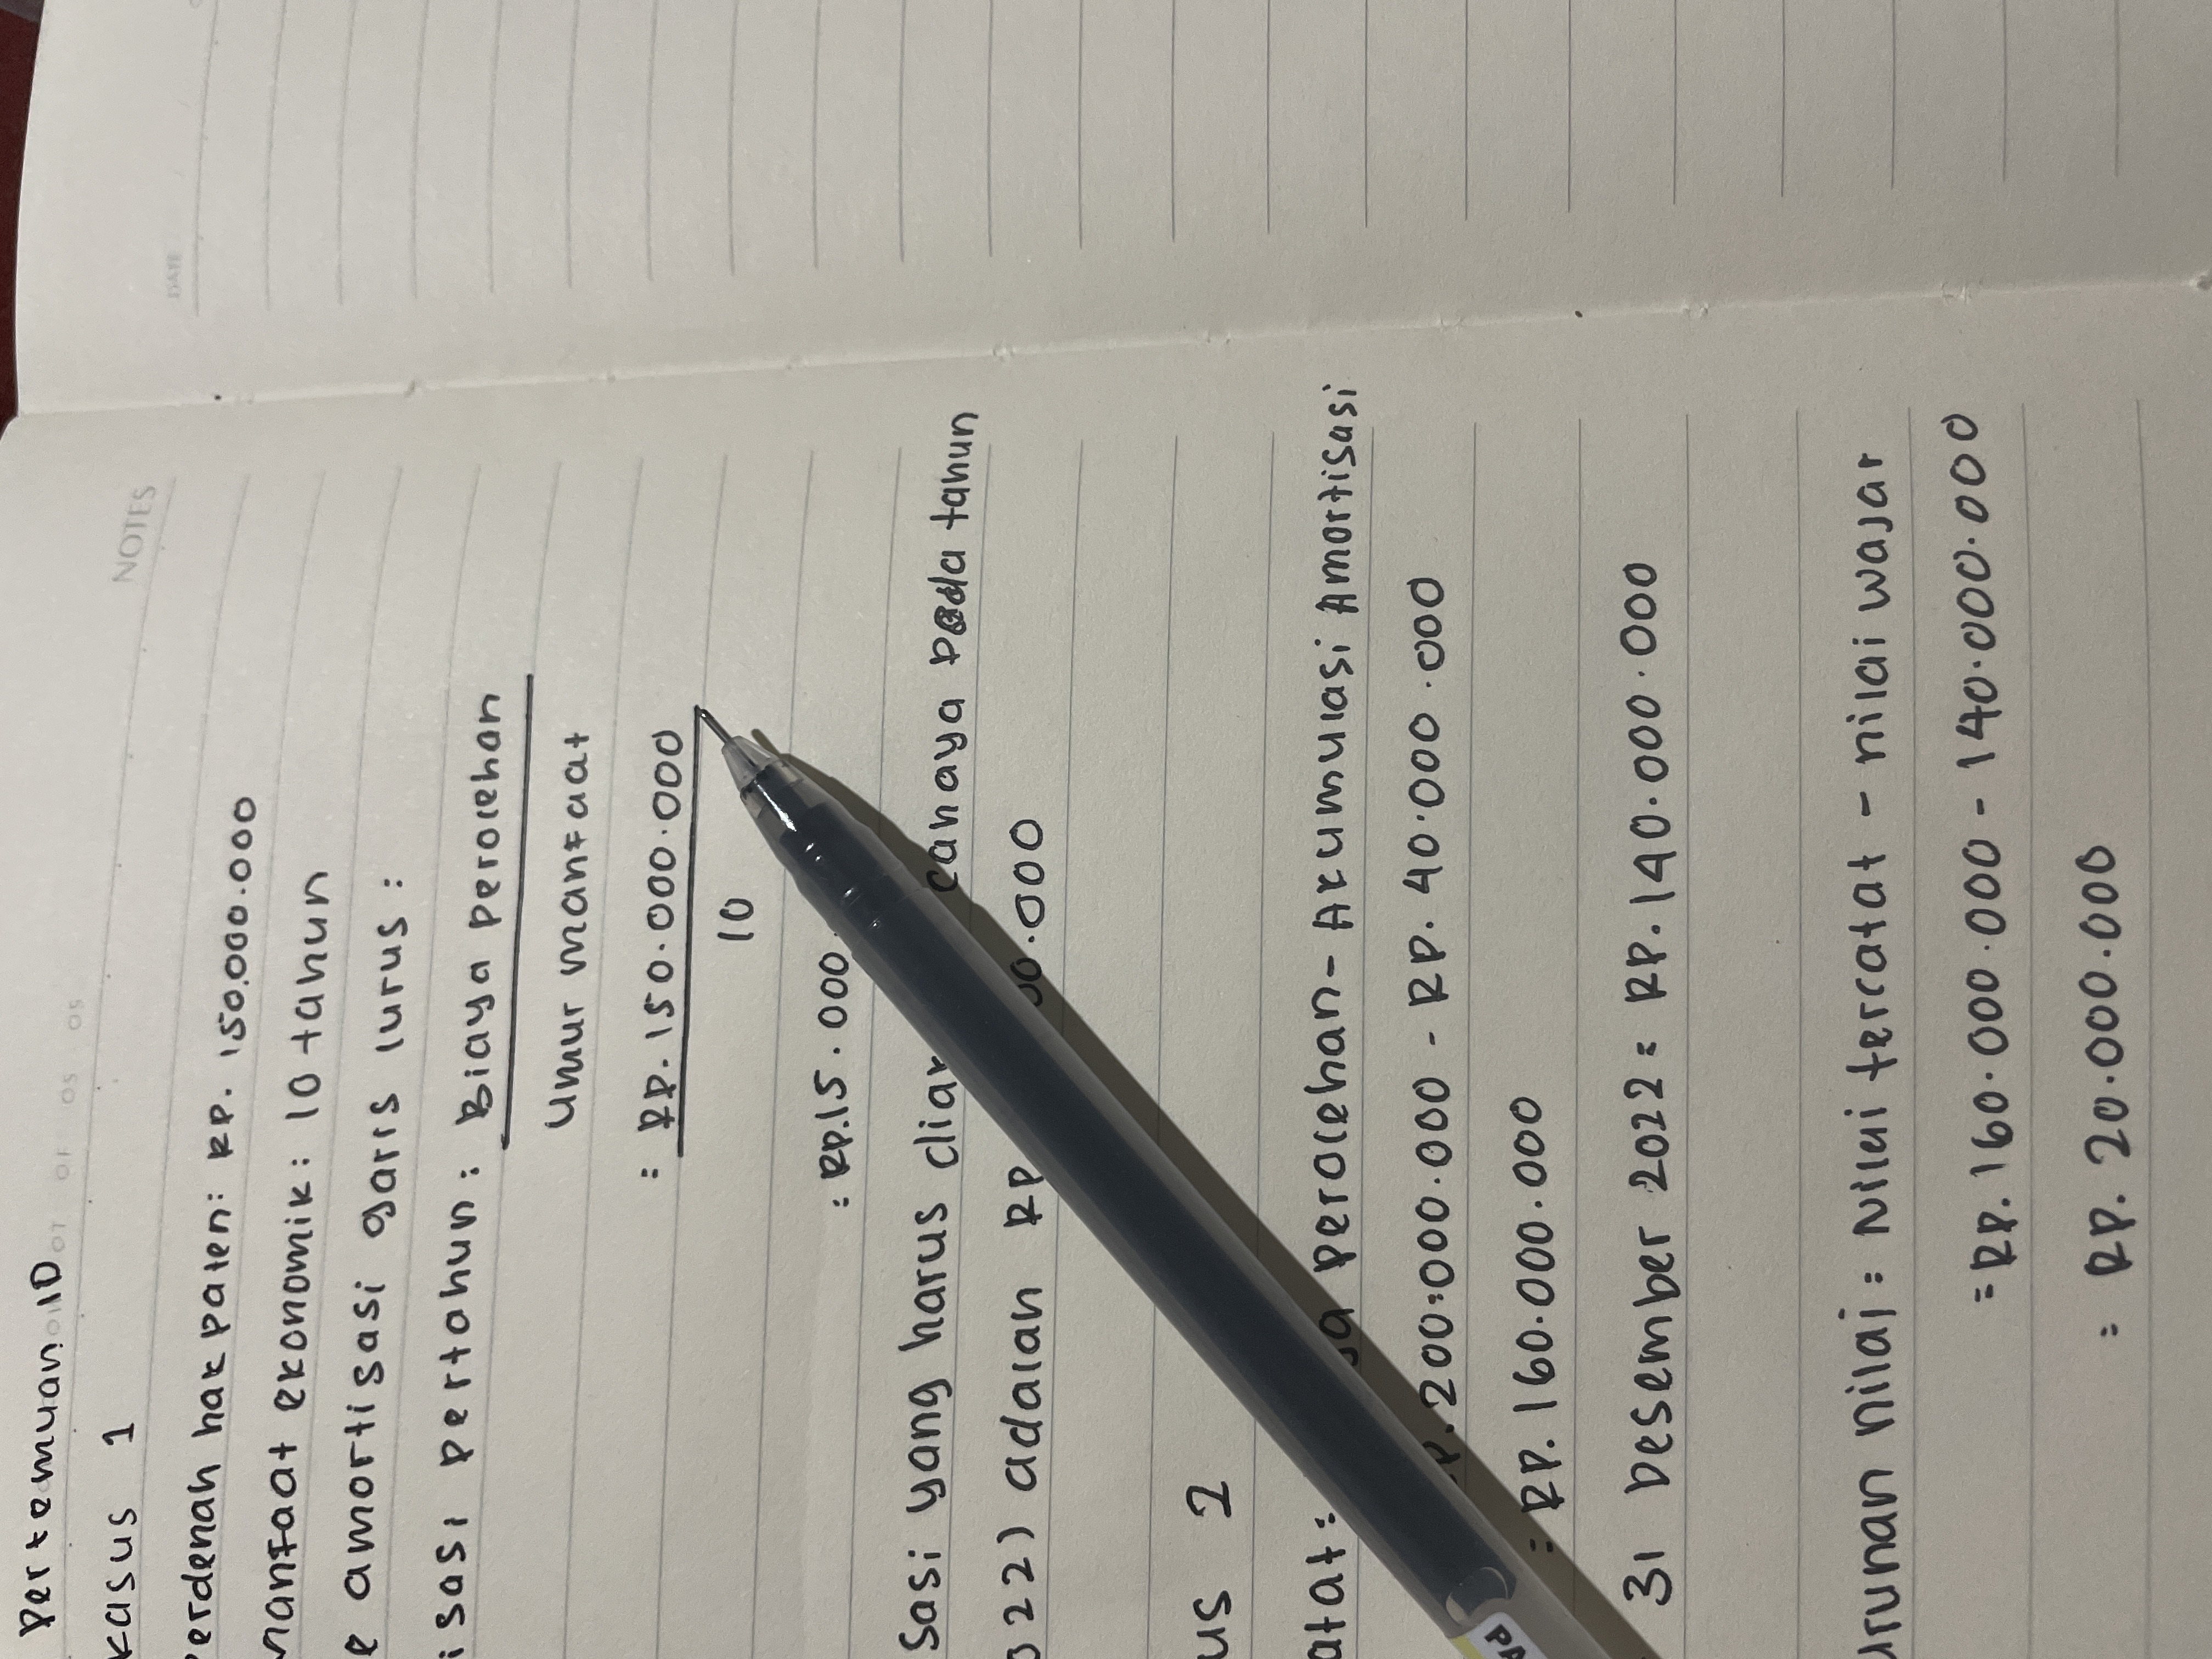 NOTES
Pertemuan 10
Kasus 1
erdenah hak paten: RP. 150.000.000
manfaat ekonomik: 10 tahun
e amortisasi garis lurus:
isasi pertahun: Biaya perolehan
Umur manfaat
= RP. 150.000.000
10
= RP.15.000
sasi yang harus dia cahaya pada tahun
22) adalah RP 00.000
us 2
atat: perolehan - Akumulasi Amortisasi
P. 200.000.000 - RP. 40.000.000
= RP. 160.000.000
31 Desember 2022 = RP. 140.000.000
urunan nilai = Nilai tercatat - nilai wajar
= RP. 160.000.000 - 140.000.000
= RP. 20.000.000
DATE
PA